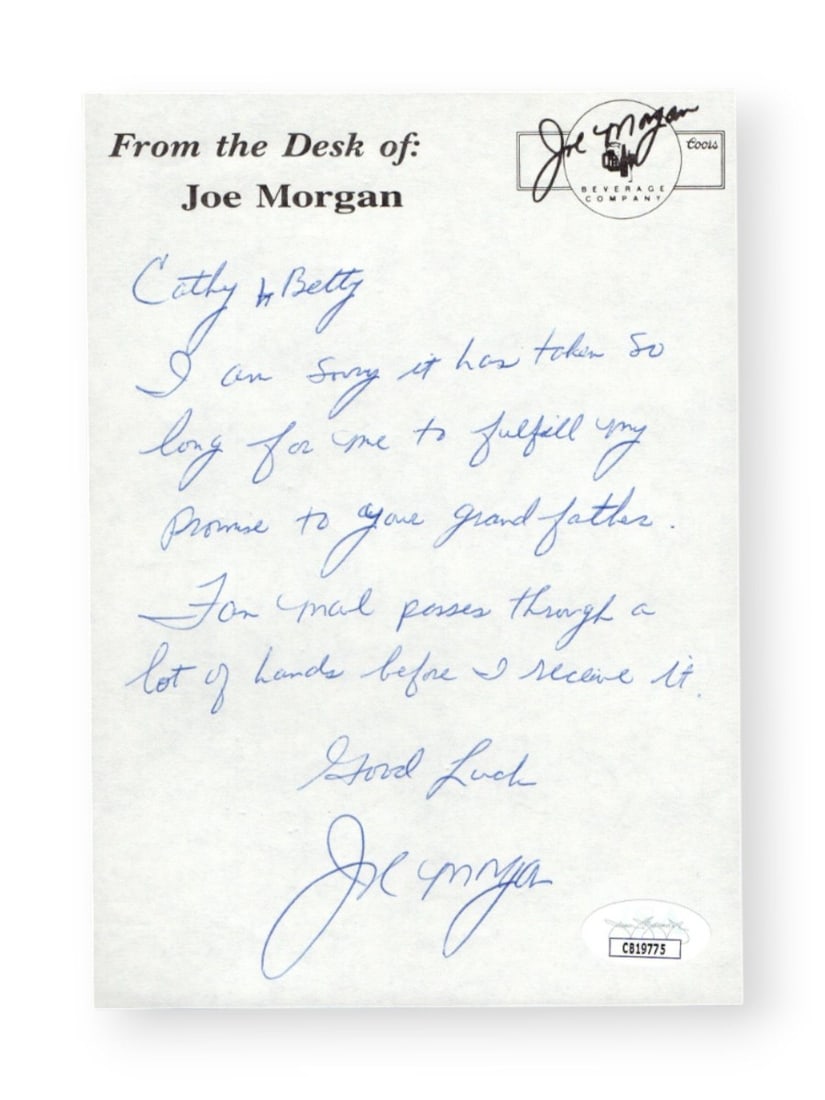 From the Desk of:
Joe Morgan
Joe Morgan
Coors
BEVERAGE
COMPANY
Cathy & Betty
I am sorry it has taken so
long for me to fulfill my
promise to your grand father.
Fan mail passes through a
lot of hands before I receive it.
Good Luck
Joe Morgan
CB19775